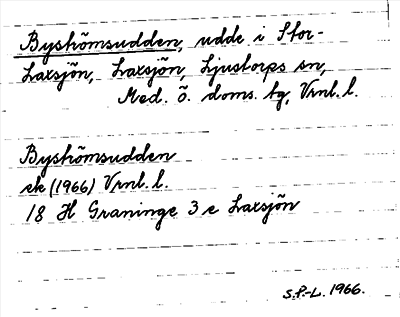 Byströmsudden, udde i Stor-
Laxsjön, Laxsjön, Ljustorps sn,
Med. ö. doms. tg, Vrnl. l.
Byströmsudden
ek (1966) Vrnl. l.
18 H Graninge 3 e Laxsjön
S.P.-L. 1966.